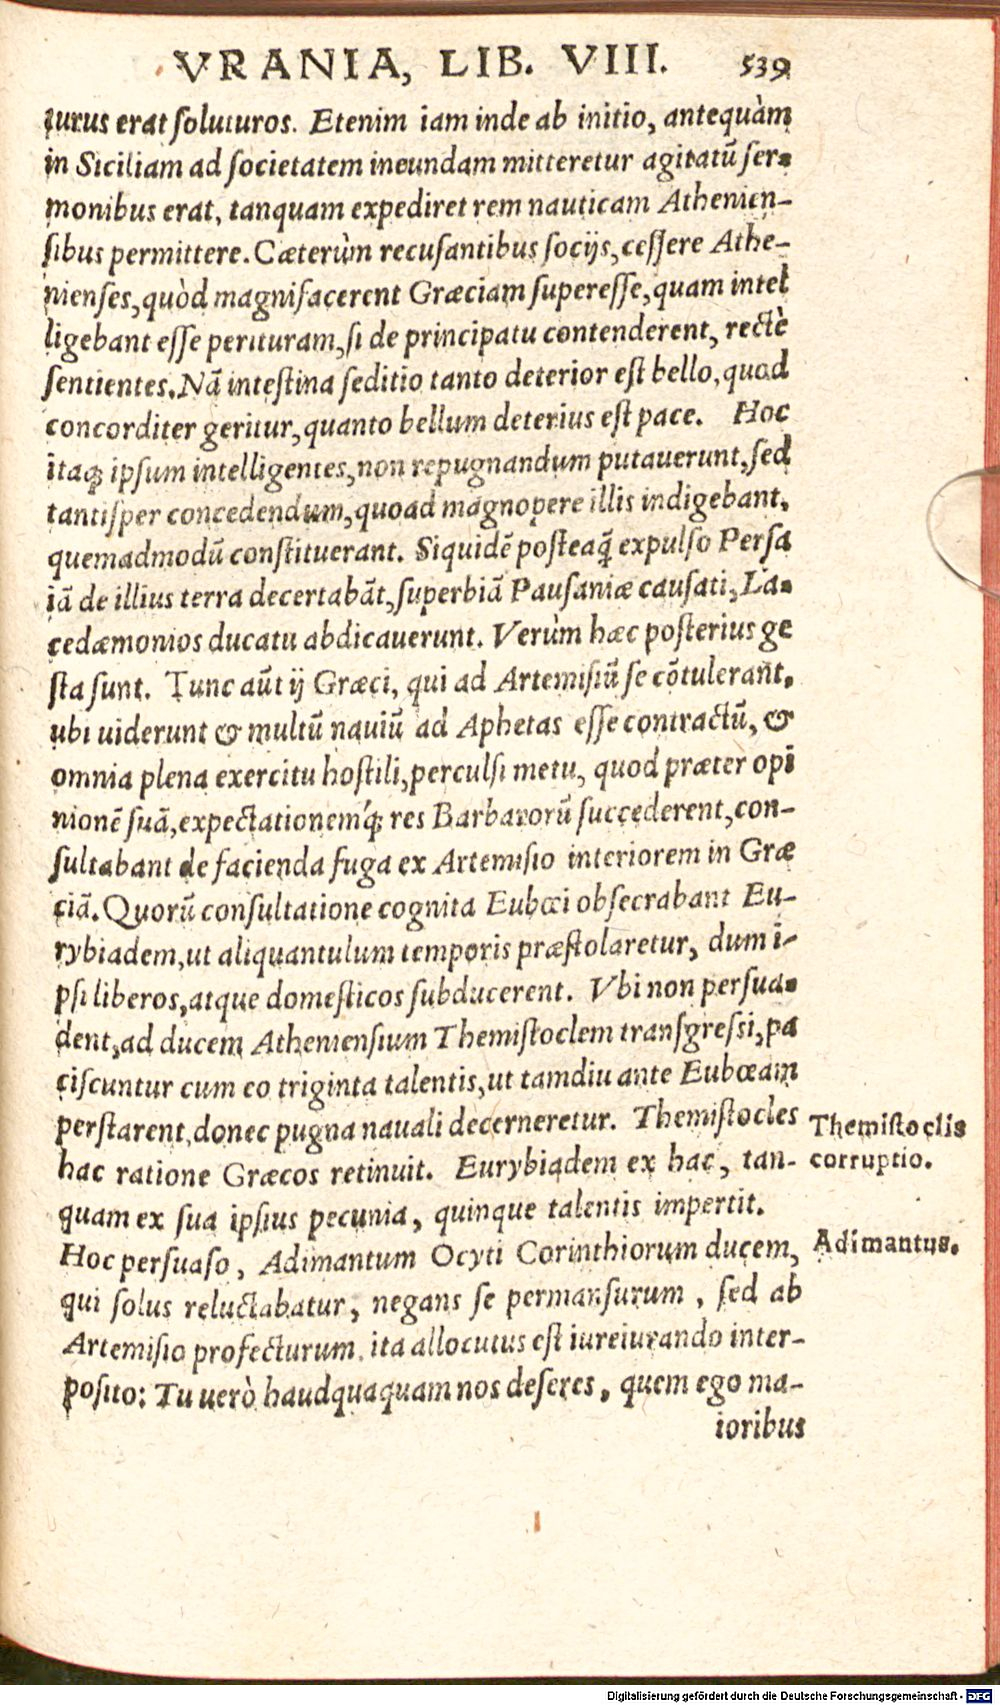 VRANIA, LIB. VIII. 539
turus erat ſoluturos. Etenim iam inde ab initio, antequàm
in Siciliam ad ſocietatem ineundam mitteretur agitatũ ſer-
monibus erat, tanquam expediret rem nauticam Athenien-
ſibus permittere. Cæterùm recuſantibus ſocijs, ceſſere Athe-
nienſes, quòd magnifacerent Græciam ſupereſſe, quam intel
ligebant eſſe perituram, ſi de principatu contenderent, rectè
ſentientes. Nã inteſtina ſeditio tanto deterior eſt bello, quod
concorditer geritur, quanto bellum deterius eſt pace. Hoc
itaq; ipſum intelligentes, non repugnandum putauerunt, ſed
tantiſper concedendum, quoad magnopere illis indigebant,
quemadmodũ conſtituerant. Siquidẽ poſteaq̃ expulſo Perſa
iã de illius terra decertabãt, ſuperbiã Pauſaniæ cauſati, La-
cedæmonios ducatu abdicauerunt. Verùm hæc poſterius ge
ſta ſunt. Tunc aũt ij Græci, qui ad Artemiſiũ ſe cõtulerant,
ubi uiderunt & multũ nauiũ ad Aphetas eſſe contractũ, &
omnia plena exercitu hoſtili, perculſi metu, quod præter opi
nionẽ ſuã, expectationemq́; res Barbarorũ ſuccederent, con-
ſultabant de facienda fuga ex Artemiſio interiorem in Græ
ciã. Quorũ conſultatione cognita Eubœi obſecrabant Eu-
rybiadem, ut aliquantulum temporis præſtolaretur, dum i-
pſi liberos, atque domeſticos ſubducerent. Vbi non perſua-
dent, ad ducem Athenienſium Themiſtoclem tranſgreſſi, pa
ciſcuntur cum eo triginta talentis, ut tamdiu ante Eubœam
perſtarent, donec pugna nauali decerneretur. Themiſtocles
hac ratione Græcos retinuit. Eurybiadem ex hac, tan-
quam ex ſua ipſius pecunia, quinque talentis impertit.
Hoc perſuaſo, Adimantum Ocyti Corinthiorum ducem,
qui ſolus reluctabatur, negans ſe permanſurum, ſed ab
Artemiſio profecturum, ita allocutus eſt iureiurando inter-
poſito: Tu uerò haudquaquam nos deſeres, quem ego ma-
ioribus
Themiſtoclis
corruptio.
Adimantus.
Digitalisierung gefördert durch die Deutsche Forschungsgemeinschaft - DFG